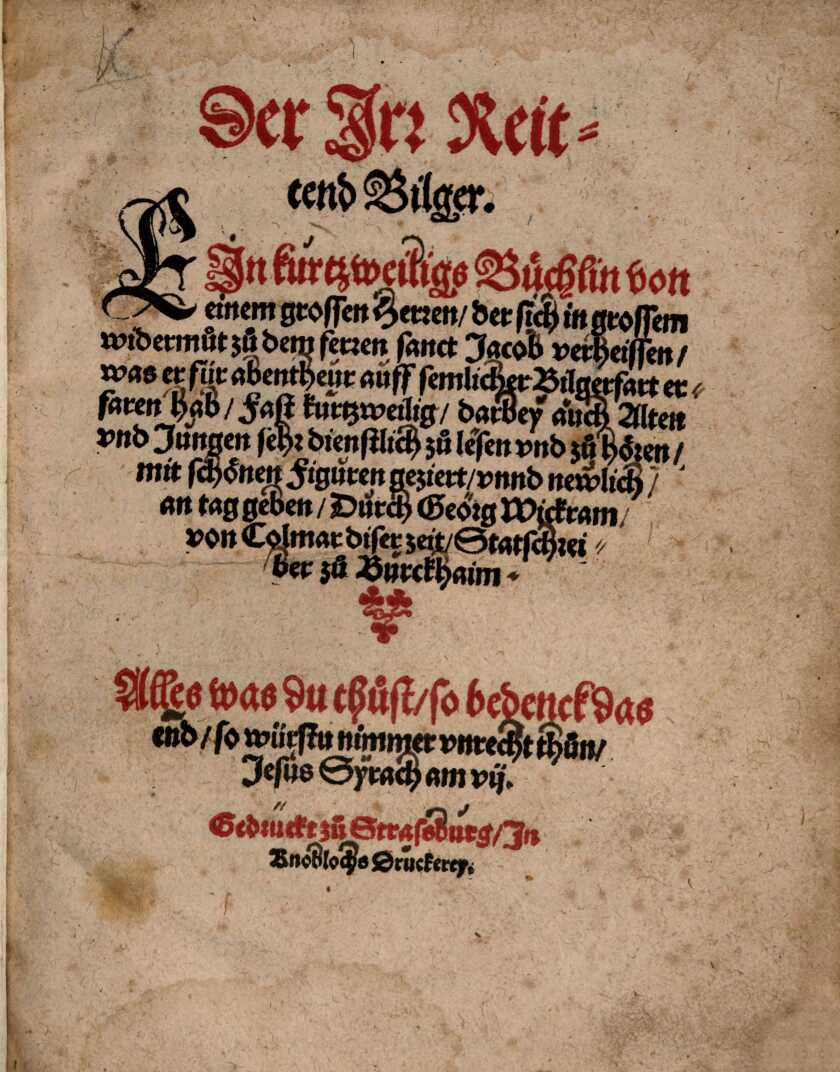 Der Jrr Reit⸗
tend Bilger.
EJn kurtzweiligs Bůchlin von
einem grossen Herren/ der sich in grossem
widermůt zů dem ferren sanct Jacob verheissen/
was er für abentheür auff semlicher Bilgerfart er⸗
faren hab/ Fast kurtzweilig/ darbey auch Alten
vnd Jungen sehr dienstlich zů lesen vnd zů hören/
mit schönen Figuren geziert/ vnnd newlich/
an tag geben/ Durch Georg Wickram/
von Colmar diser zeit/ Statschrei⸗
ber zů Burckhaim.
Alles was du thůst/ so bedenck das
end/ so würstu nimmer vnrecht thůn/
Jesus Syrach am vij.
Gedruckt zů Strassburg/ Jn
Knoblochs Druckerey.